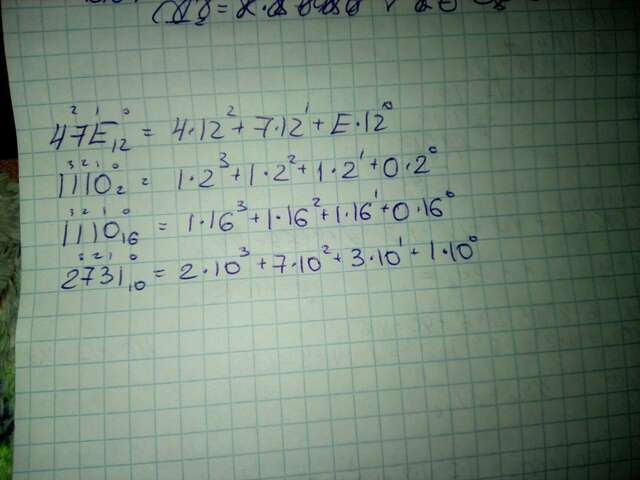 2 1 0
47E₁₂ = 4·12² + 7·12¹ + E·12⁰
3 2 1 0
1110₂ = 1·2³ + 1·2² + 1·2¹ + 0·2⁰
3 2 1 0
1110₁₆ = 1·16³ + 1·16² + 1·16¹ + 0·16⁰
3 2 1 0
2731₁₀ = 2·10³ + 7·10² + 3·10¹ + 1·10⁰